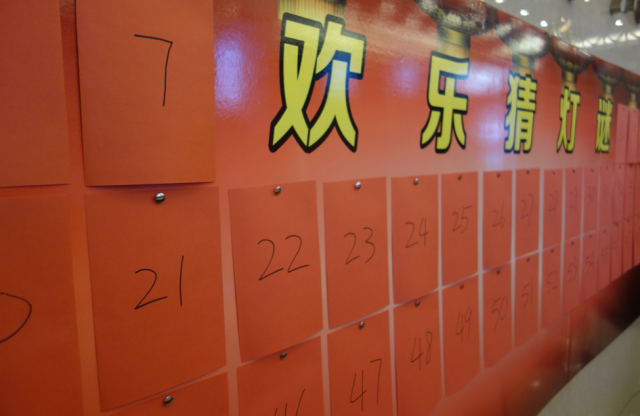 欢乐猜灯谜
7
21 22 23 24 25 26 27
47 48 49 50 51 52